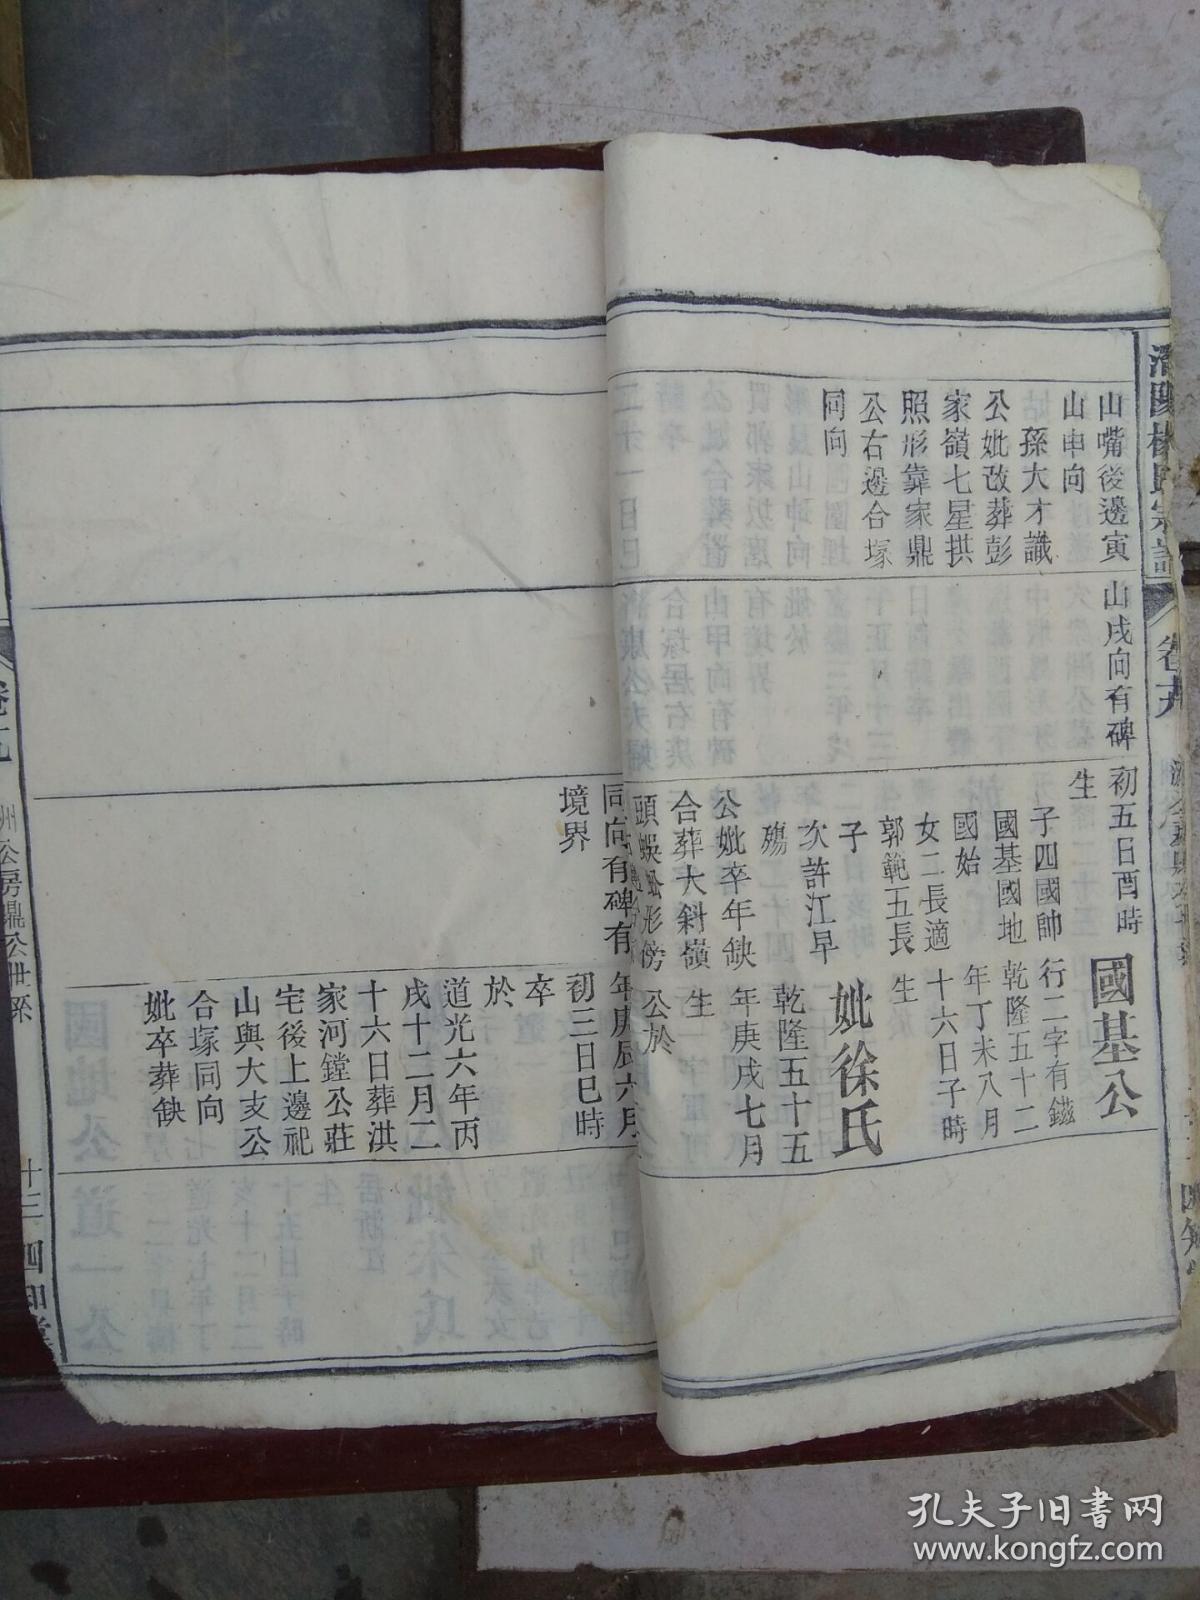 楊氏宗譜
卷十九
山嘴後邊寅
山申向
姑孫大才識
公妣改葬彭
家嶺七星拱
照形靠家鼎
公右邊合塚
同向
山戌向有碑
初五日酉時
生
子四國帥
國基國地
國始
女二長適
郭範五長
子
次許江早
殤
公妣卒年缺
合葬大斜嶺
頭蜈蚣形傍
同向有碑有
境界
國基公
行二字有鎡
乾隆五十二
年丁未八月
十六日子時
生
妣徐氏
乾隆五十五
年庚戌七月
生
公於
年庚辰六月
初三日巳時
卒
於
道光六年丙
戌十二月二
十六日葬洪
家河鏜公莊
宅後上邊祀
山與大亥公
合塚同向
妣卒葬缺
卷十九
州公房鼎公世系
十三
四知堂
孔夫子旧书网
www.kongfz.com